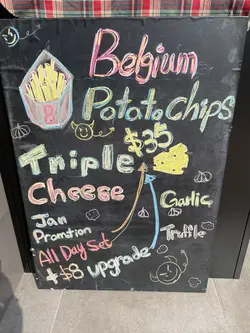 Belgium
Potato Chips
8
$35
Triple
Cheese
Garlic
Jan
Promtion
Truffle
All Day Set
+$8 upgrade